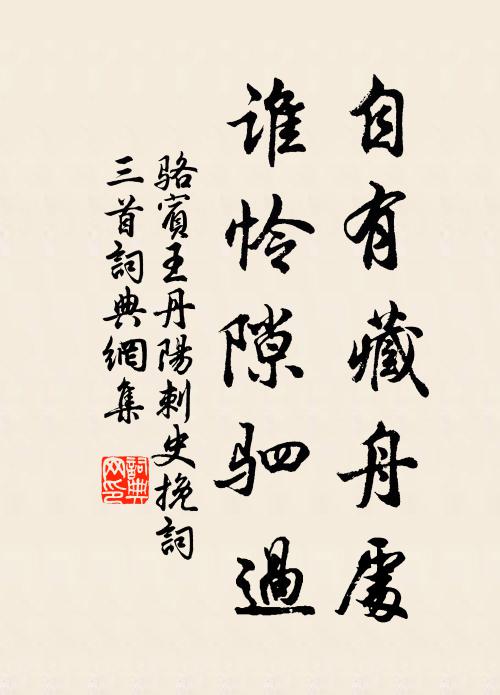 自有藏舟處
誰怜隙駟過
駱賓王丹陽刺史挽詞
三首詞典網集
詞典
网印